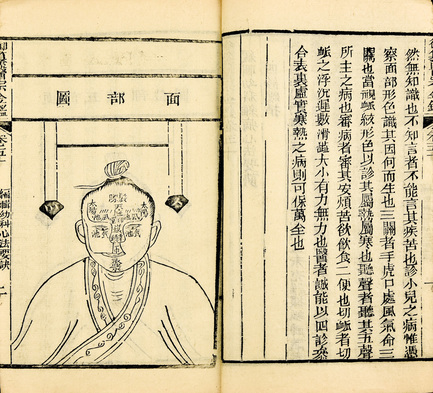 然無知識也不知言者不能言其疾苦也診小兒之病惟憑
察面部形色識其因何而生也三關者手虎口處風氣命三
關也當視脈紋形色以診其屬熱屬寒也聽聲者聽其五聲
所主之病也審病者審其安煩苦欲飲食二便也切脈者切
脈之浮沉遲數滑濇大小有力無力也醫者誠能以四診參
合表裏虛實寒熱之病則可保萬全也
面部圖
太陽
太陽
御纂醫宗金鑑
卷五十
編輯幼科心法要訣